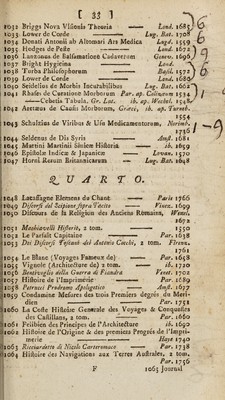 [ 33 ]
1032 Briggs Nova Visionis Theoria — Lond. 1685
1033 Lower de Corde — Lug. Bat. 1708
1034 Donati Antonii ab Altomari Ars Medica Lugd. 1559
1035 Hodges de Peste — Lond. 1671
1036 Lanzonus de Balsamatione Cadaverum Genev. 1696
1037 Bright Hygieina — Lond.
1038 Turba Philosophorum — Basil. 1572
1039 Lower de Corde — Lond. 1680
1040 Seidelius de Morbis Incurabilibus Lug. Bat. 1662
1041 Rhases de Curatione Morborum Par. ap. Colinæum 1534
——Cebetis Tabula, Gr. Lat. ib. ap. Wechel. 1548
1042 Aretæus de Causis Morborum, Græcè, ib. ap. Turneb.
1554
1043 Schulzius de Viribus & Usu Medicamentorum, Norimb.
1044 Seldenus de Dis Syris — Amst. 1681
1045 Martini Martinii Sinicæ Historia — ib. 1659
1046 Epistolæ Indicæ & Japanicæ — Lovan. 1570
1047 Horni Rerum Britannicarum — Lug. Bat. 1648
QUARTO.
1048 Lacaffagne Elemens du Chant — Paris 1766
1049 Discorsi del Scipione sopra l'ecito — Venet. 1599
1050 Discours de la Religion des Anciens Romains, Wesel.
1672
1051 Machiavelli Historie, 2 tom. — 1550
1052 Le Parfait Capitaine — Par. 1638
1053 Dei Discorsi Toscani del Antonio Cocchi, 2 tom. Firenz.
1761
1054 Le Blanc (Voyages Fameux de) — Par. 1658
1055 Vignole (Architecture de) 2 tom. — ib. 1720
1056 Bentivoglio della Guerra di Fiandra Venet. 1702
1057 Histoire de l'Imprimérie — Par. 1689
1058 Petrucci Prodromo Apologetico — Amst. 1677
1059 Condamine Mesures des trois Premiers degrés du Meri-
dien — Par. 1751
1060 La Coste Histoire Generale des Voyages & Conquestes
des Castillans, 2 tom. — Par. 1660
1061 Felibien des Principes de l'Architecture ib. 1690
1062 Histoire de l'Origine & des premiers Progrés de l'Impri-
merie — Haye 1740
1063 Ricciardetto di Nicolo Carteromaco — Par. 1738
1064 Histoire des Navigations aux Terres Australes, 2 tom.
Par. 1756
F 1065 Journal